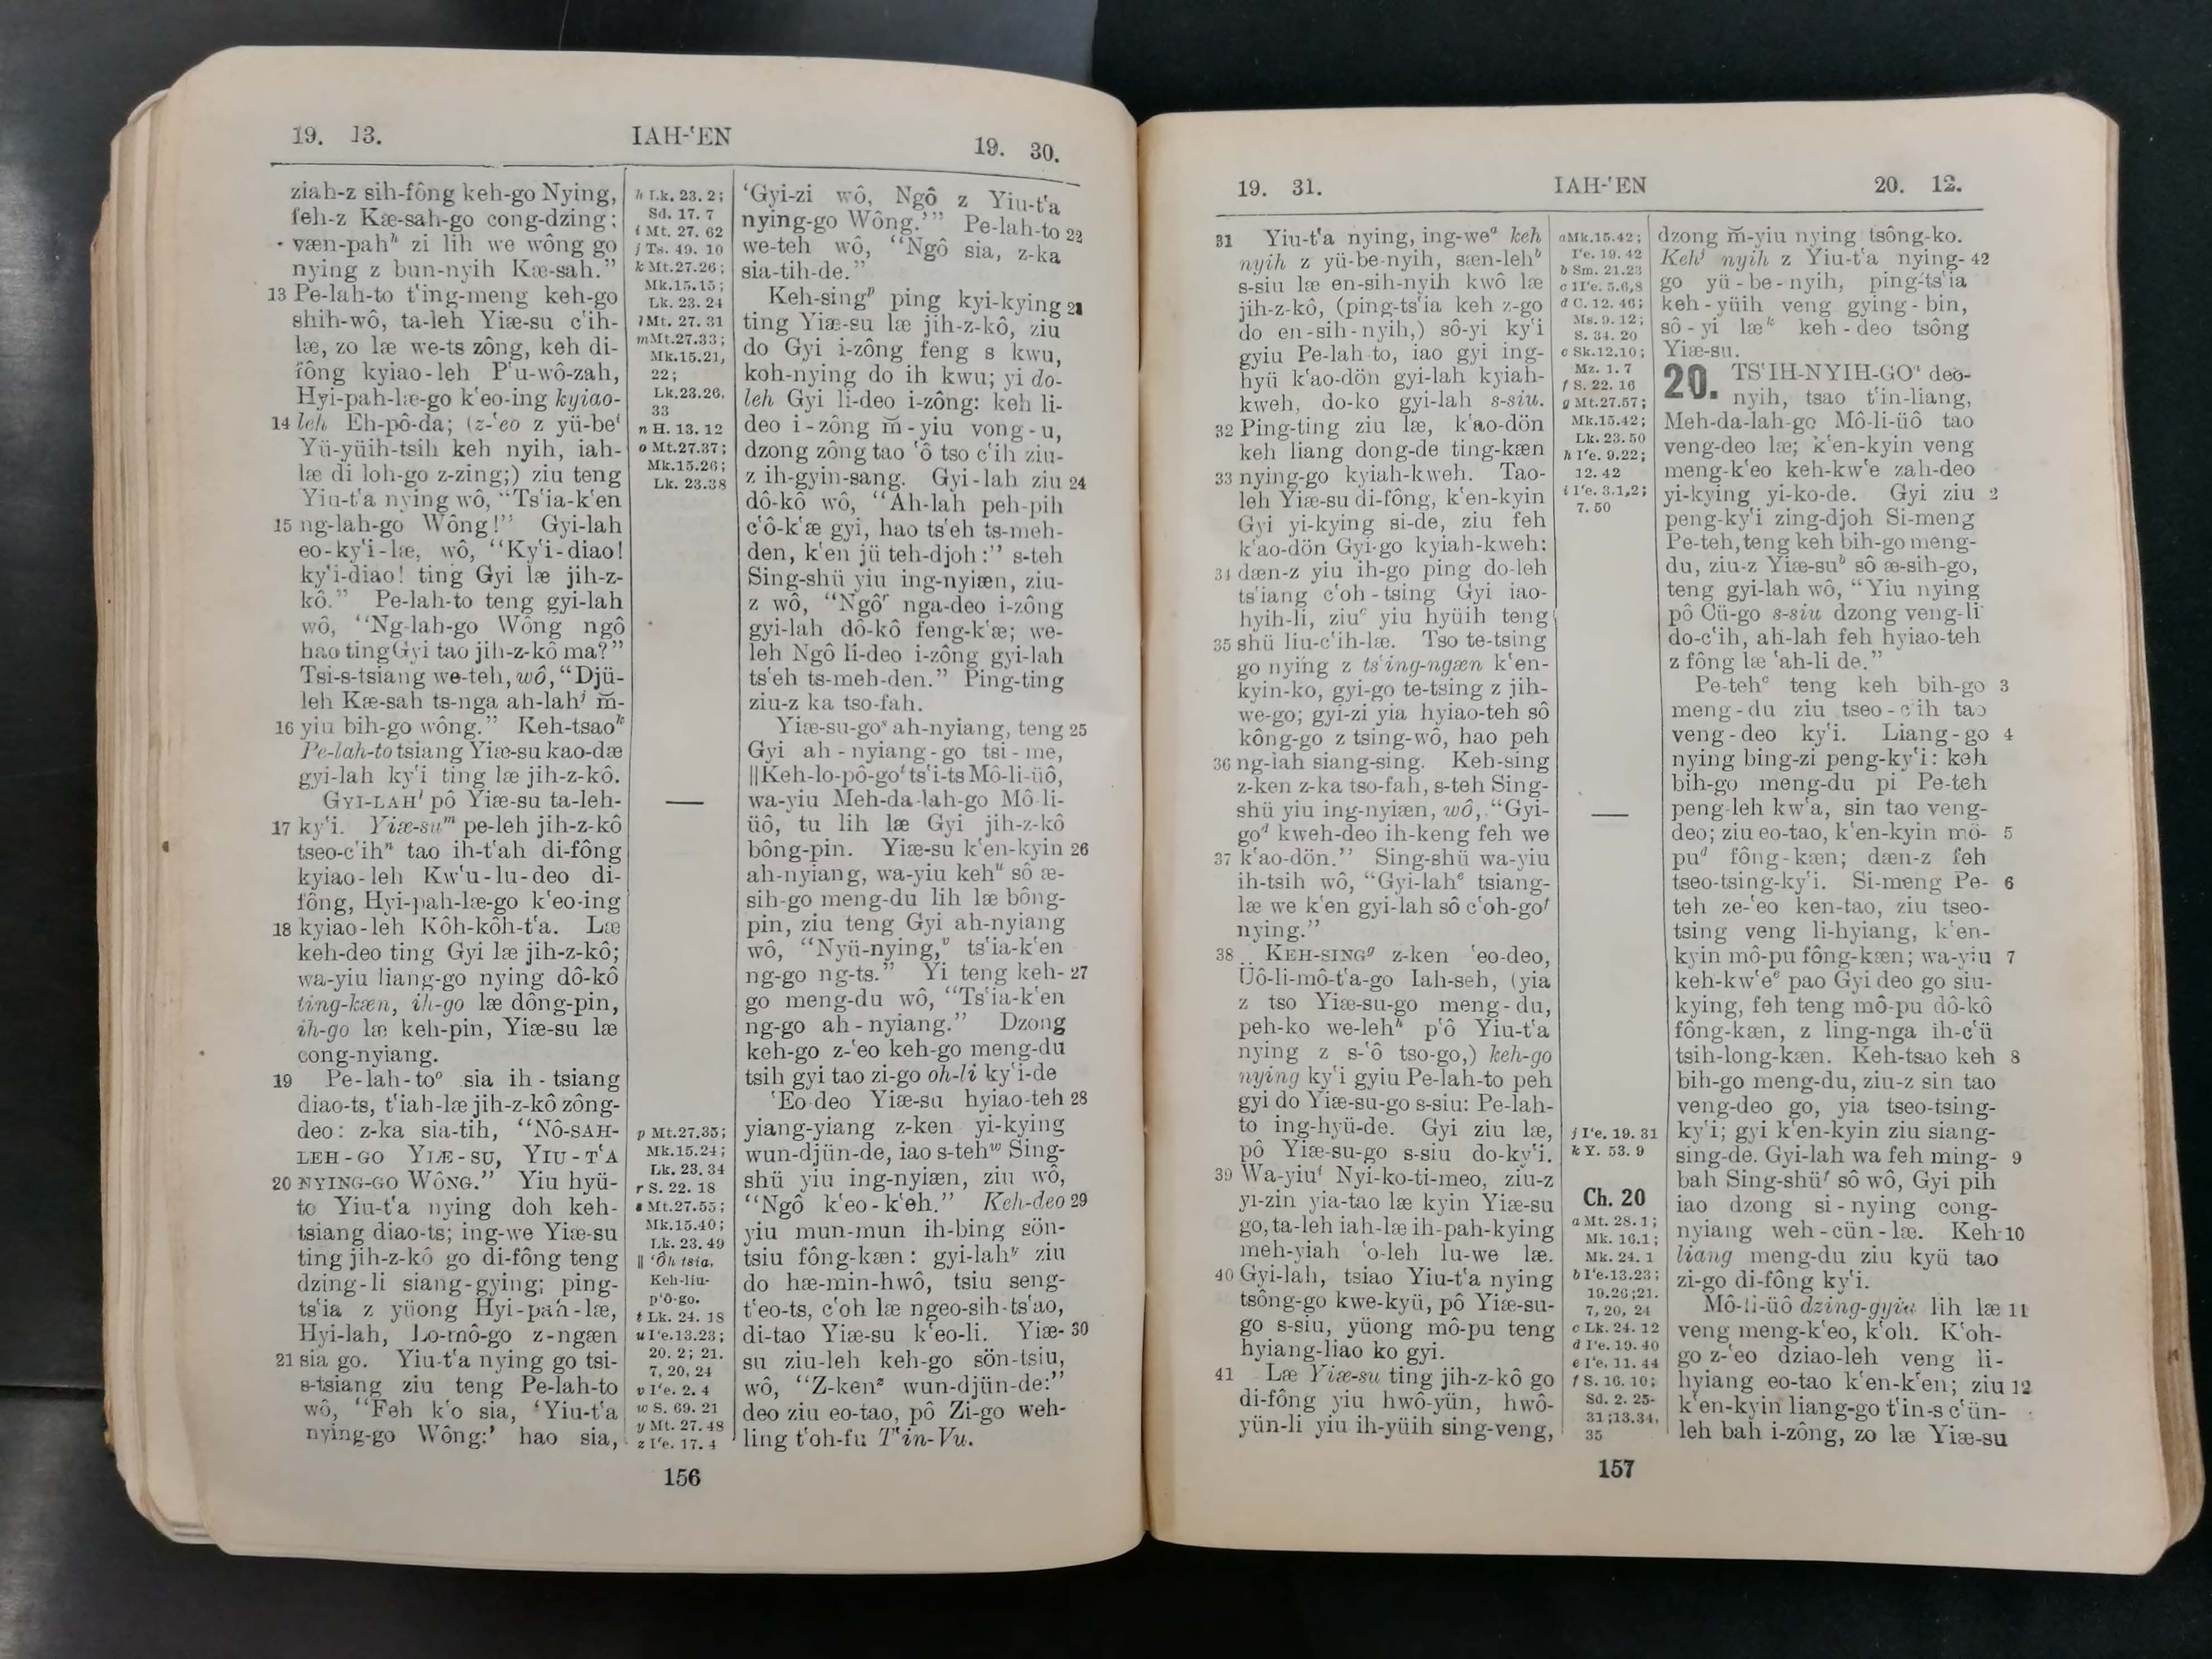 19. 13. IAH-'EN 19. 30.
ziah-z sih-fông keh-go Nying,
feh-z Kæ-sah-go cong-dzing:
væn-pahʰ zi lih we wông go
nying z bun-nyih Kæ-sah."
13 Pe-lah-to t'ing-meng keh-go
shih-wô, ta-leh Yiæ-su c'ih-
læ, zo læ we-ts zông, keh di-
fông kyiao-leh P'u-wô-zah,
Hyi-pah-læ-go k'eo-ing kyiao-
14 leh Eh-pô-da; (z-'eo z yü-beⁱ
Yü-yüih-tsih keh nyih, iah-
læ di loh-go z-zing;) ziu teng
Yiu-t'a nying wô, "Ts'ia-k'en
15 ng-lah-go Wông!" Gyi-lah
eo-ky'i-læ, wô, "Ky'i-diao!
ky'i-diao! ting Gyi læ jih-z-
kô." Pe-lah-to teng gyi-lah
wô, "Ng-lah-go Wông ngô
hao ting Gyi tao jih-z-kô ma?"
Tsi-s-tsiang we-teh, wô, "Djü-
leh Kæ-sah ts-nga ah-lahʲ m̆-
16 yiu bih-go wông." Keh-tsaoᵏ
Pe-lah-to tsiang Yiæ-su kao-dæ
gyi-lah ky'i ting læ jih-z-kô.
GYI-LAHˡ pô Yiæ-su ta-leh-
17 ky'i. Yiæ-suᵐ pe-leh jih-z-kô
tseo-c'ihⁿ tao ih-t'ah di-fông
kyiao-leh Kw'u-lu-deo di-
fông, Hyi-pah-læ-go k'eo-ing
18 kyiao-leh Kôh-kôh-t'a. Læ
keh-deo ting Gyi læ jih-z-kô;
wa-yiu liang-go nying dô-kô
ting-kæn, ih-go læ dông-pin,
ih-go læ keh-pin, Yiæ-su læ
cong-nyiang.
19 Pe-lah-toᵒ sia ih-tsiang
diao-ts, t'iah-læ jih-z-kô zông-
deo: z-ka sia-tih, "NÔ-SAH-
LEH-GO YIÆ-SU, YIU-T'A
20 NYING-GO WÔNG." Yiu hyü-
to Yiu-t'a nying doh keh-
tsiang diao-ts; ing-we Yiæ-su
ting jih-z-kô go di-fông teng
dzing-li siang-gying; ping-
ts'ia z yüong Hyi-pah-læ,
Hyi-lah, Lo-mô-go z-ngæn
21 sia go. Yiu-t'a nying go tsi-
s-tsiang ziu teng Pe-lah-to
wô, "Feh k'o sia, 'Yiu-t'a
nying-go Wông:' hao sia,
h Lk. 23. 2;
Sd. 17. 7
i Mt. 27. 62
j Ts. 49. 10
k Mt.27.26;
Mk.15.15;
Lk. 23. 24
l Mt. 27. 31
m Mt.27.33;
Mk.15.21,
22;
Lk.23.26,
33
n H. 13. 12
o Mt.27.37;
Mk.15.26;
Lk. 23.38
p Mt.27.35;
Mk.15.24;
Lk. 23. 34
r S. 22. 18
s Mt.27.55;
Mk.15.40;
Lk. 23. 49
‖ 'Ôh tsia,
Keh-liu-
p'ô-go.
t Lk. 24. 18
u I'e.13.23;
20. 2; 21.
7, 20, 24
v I'e. 2. 4
w S. 69. 21
y Mt. 27. 48
z I'e. 17. 4
'Gyi-zi wô, Ngô z Yiu-t'a
nying-go Wông.'" Pe-lah-to 22
we-teh wô, "Ngô sia, z-ka
sia-tih-de."
Keh-singᵖ ping kyi-kying 23
ting Yiæ-su læ jih-z-kô, ziu
do Gyi i-zông feng s kwu,
koh-nying do ih kwu; yi do-
leh Gyi li-deo i-zông: keh li-
deo i-zông m̆-yiu vong-u,
dzong zông tao 'ô tso c'ih ziu-
z ih-gyin-sang. Gyi-lah ziu 24
dô-kô wô, "Ah-lah peh-pih
c'ô-k'æ gyi, hao ts'eh ts-meh-
den, k'en jü teh-djoh:" s-teh
Sing-shü yiu ing-nyiæn, ziu-
z wô, "Ngôʳ nga-deo i-zông
gyi-lah dô-kô feng-k'æ; we-
leh Ngô li-deo i-zông gyi-lah
ts'eh ts-meh-den." Ping-ting
ziu-z ka tso-fah.
Yiæ-su-goˢ ah-nyiang, teng 25
Gyi ah-nyiang-go tsi-me,
‖Keh-lo-pô-goᵗ ts'i-ts Mô-li-üô,
wa-yiu Meh-da-lah-go Mô-li-
üô, tu lih læ Gyi jih-z-kô
bông-pin. Yiæ-su k'en-kyin 26
ah-nyiang, wa-yiu kehᵘ sô æ-
sih-go meng-du lih læ bông-
pin, ziu teng Gyi ah-nyiang
wô, "Nyü-nying,ᵛ ts'ia-k'en
ng-go ng-ts." Yi teng keh- 27
go meng-du wô, "Ts'ia-k'en
ng-go ah-nyiang." Dzong
keh-go z-'eo keh-go meng-du
tsih gyi tao zi-go oh-li ky'i-de
'Eo-deo Yiæ-su hyiao-teh 28
yiang-yiang z-ken yi-kying
wun-djün-de, iao s-tehʷ Sing-
shü yiu ing-nyiæn, ziu wô,
"Ngô k'eo-k'eh." Keh-deo 29
yiu mun-mun ih-bing sön-
tsiu fông-kæn: gyi-lahʸ ziu
do hæ-min-hwô, tsiu seng-
t'eo-ts, c'oh læ ngeo-sih-ts'ao,
di-tao Yiæ-su k'eo-li. Yiæ- 30
su ziu-leh keh-go sön-tsiu,
wô, "Z-kenᶻ wun-djün-de:"
deo ziu eo-tao, pô Zi-go weh-
ling t'oh-fu T'in-Vu.
156
19. 31. IAH-'EN 20. 12.
31 Yiu-t'a nying, ing-weᵃ keh
nyih z yü-be-nyih, sæn-lehᵇ
s-siu læ en-sih-nyih kwô læ
jih-z-kô, (ping-ts'ia keh z-go
do en-sih-nyih,) sô-yi ky'i
gyiu Pe-lah-to, iao gyi ing-
hyü k'ao-dön gyi-lah kyiah-
kweh, do-ko gyi-lah s-siu.
32 Ping-ting ziu læ, k'ao-dön
keh liang dong-de ting-kæn
33 nying-go kyiah-kweh. Tao-
leh Yiæ-su di-fông, k'en-kyin
Gyi yi-kying si-de, ziu feh
k'ao-dön Gyi-go kyiah-kweh:
34 dæn-z yiu ih-go ping do-leh
ts'iang c'oh-tsing Gyi iao-
hyih-li, ziuᶜ yiu hyüih teng
35 shü liu-c'ih-læ. Tso te-tsing
go nying z ts'ing-ngæn k'en-
kyin-ko, gyi-go te-tsing z jih-
we-go; gyi-zi yia hyiao-teh sô
kông-go z tsing-wô, hao peh
36 ng-lah siang-sing. Keh-sing
z-ken z-ka tso-fah, s-teh Sing-
shü yiu ing-nyiæn, wô, "Gyi-
goᵈ kweh-deo ih-keng feh we
37 k'ao-dön." Sing-shü wa-yiu
ih-tsih wô, "Gyi-lahᵉ tsiang-
læ we k'en gyi-lah sô c'oh-goᶠ
nying."
38 KEH-SINGᵍ z-ken 'eo-deo,
Üô-li-mô-t'a-go Iah-seh, (yia
z tso Yiæ-su-go meng-du,
peh-ko we-lehʰ p'ô Yiu-t'a
nying z s-'ô tso-go,) keh-go
nying ky'i gyiu Pe-lah-to peh
gyi do Yiæ-su-go s-siu: Pe-lah-
to ing-hyü-de. Gyi ziu læ,
pô Yiæ-su-go s-siu do-ky'i.
39 Wa-yiuⁱ Nyi-ko-ti-meo, ziu-z
yi-zin yia-tao læ kyin Yiæ-su
go, ta-leh iah-læ ih-pah-kying
meh-yiah 'o-leh lu-we læ.
40 Gyi-lah, tsiao Yiu-t'a nying
tsông-go kwe-kyü, pô Yiæ-su-
go s-siu, yüong mô-pu teng
hyiang-liao ko gyi.
41 Læ Yiæ-su ting jih-z-kô go
di-fông yiu hwô-yün, hwô-
yün-li yiu ih-yüih sing-veng,
a Mk.15.42;
I'e. 19. 42
b Sm. 21.23
c 1I'e. 5.6,8
d C. 12. 46;
Ms. 9. 12;
S. 34. 20
e Sk.12.10;
Mz. 1. 7
f S. 22. 16
g Mt.27.57;
Mk.15.42;
Lk. 23. 50
h I'e. 9.22;
12. 42
i I'e. 3.1,2;
7. 50
j I'e. 19. 31
k Y. 53. 9
Ch. 20
a Mt. 28. 1;
Mk. 16.1;
Mk. 24. 1
b I'e.13.23;
19.26;21.
7, 20, 24
c Lk. 24. 12
d I'e. 19. 40
e I'e. 11. 44
f S. 16. 10;
Sd. 2. 25-
31;13.34,
35
dzong m̆-yiu nying tsông-ko.
Kehʲ nyih z Yiu-t'a nying- 42
go yü-be-nyih, ping-ts'ia
keh-yüih veng gying-bin,
sô-yi læᵏ keh-deo tsông
Yiæ-su.
20. TS'IH-NYIH-GOᵃ deo-
nyih, tsao t'in-liang,
Meh-da-lah-go Mô-li-üô tao
veng-deo læ; k'en-kyin veng
meng-k'eo keh-kw'e zah-deo
yi-kying yi-ko-de. Gyi ziu 2
peng-ky'i zing-djoh Si-meng
Pe-teh, teng keh bih-go meng-
du, ziu-z Yiæ-suᵇ sô æ-sih-go,
teng gyi-lah wô, "Yiu nying
pô Cü-go s-siu dzong veng-li
do-c'ih, ah-lah feh hyiao-teh
z fông læ 'ah-li de."
Pe-tehᶜ teng keh bih-go 3
meng-du ziu tseo-c'ih tao
veng-deo ky'i. Liang-go 4
nying bing-zi peng-ky'i: keh
bih-go meng-du pi Pe-teh
peng-leh kw'a, sin tao veng-
deo; ziu eo-tao, k'en-kyin mô- 5
puᵈ fông-kæn; dæn-z feh
tseo-tsing-ky'i. Si-meng Pe- 6
teh ze-'eo ken-tao, ziu tseo-
tsing veng li-hyiang, k'en-
kyin mô-pu fông-kæn; wa-yiu 7
keh-kw'eᵉ pao Gyi deo go siu-
kying, feh teng mô-pu dô-kô
fông-kæn, z ling-nga ih-c'ü
tsih-long-kæn. Keh-tsao keh 8
bih-go meng-du, ziu-z sin tao
veng-deo go, yia tseo-tsing-
ky'i; gyi k'en-kyin ziu siang-
sing-de. Gyi-lah wa feh ming- 9
bah Sing-shüᶠ sô wô, Gyi pih
iao dzong si-nying cong-
nyiang weh-cün-læ. Keh 10
liang meng-du ziu kyü tao
zi-go di-fông ky'i.
Mô-li-üô dzing-gyiu lih læ 11
veng meng-k'eo, k'oh. K'oh-
go z-'eo dziao-leh veng li-
hyiang eo-tao k'en-k'en; ziu 12
k'en-kyin liang-go t'in-s c'ün-
leh bah i-zông, zo læ Yiæ-su
157